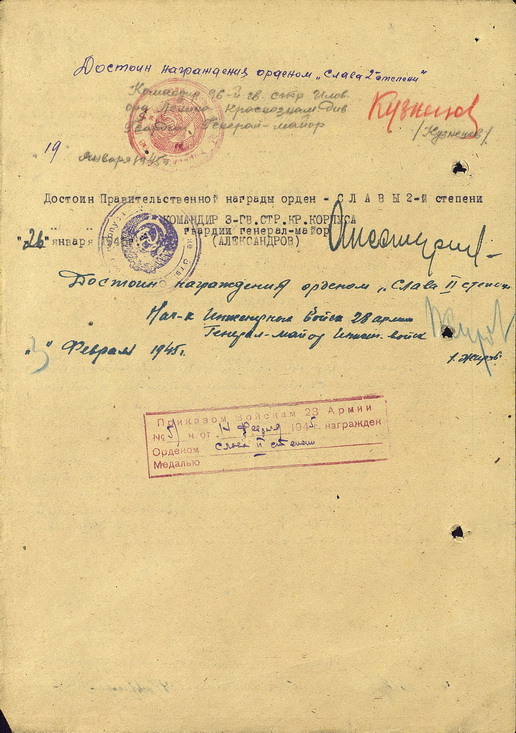 Достоин награждения орденом „Слава 2 степени"
Командир 96-й гв. стр. Илов.
орд. Ленина Краснознам. Див
Генерал-майор
Кузнецов
/Кузнецов/.
"19
января 1945г.
Достоин Правительственной награды орден - СЛАВЫ 2-й степени
КОМАНДИР 3-ГВ.СТР.КР.КОРПУСА
гвардии генерал-майор
"26" января 1945 (АЛЕКСАНДРОВ)
Достоин награждения орденом „Слава II степени
Нач-к Инженерных войск 28 армии
Генерал-майор Инжен. войск
"3" Февраля 1945г.
/Жиров
Приказом Войскам 28 Армии
№ 5 н от 14 февраля 1945 награжден
Орденом слава II степени
Медалью